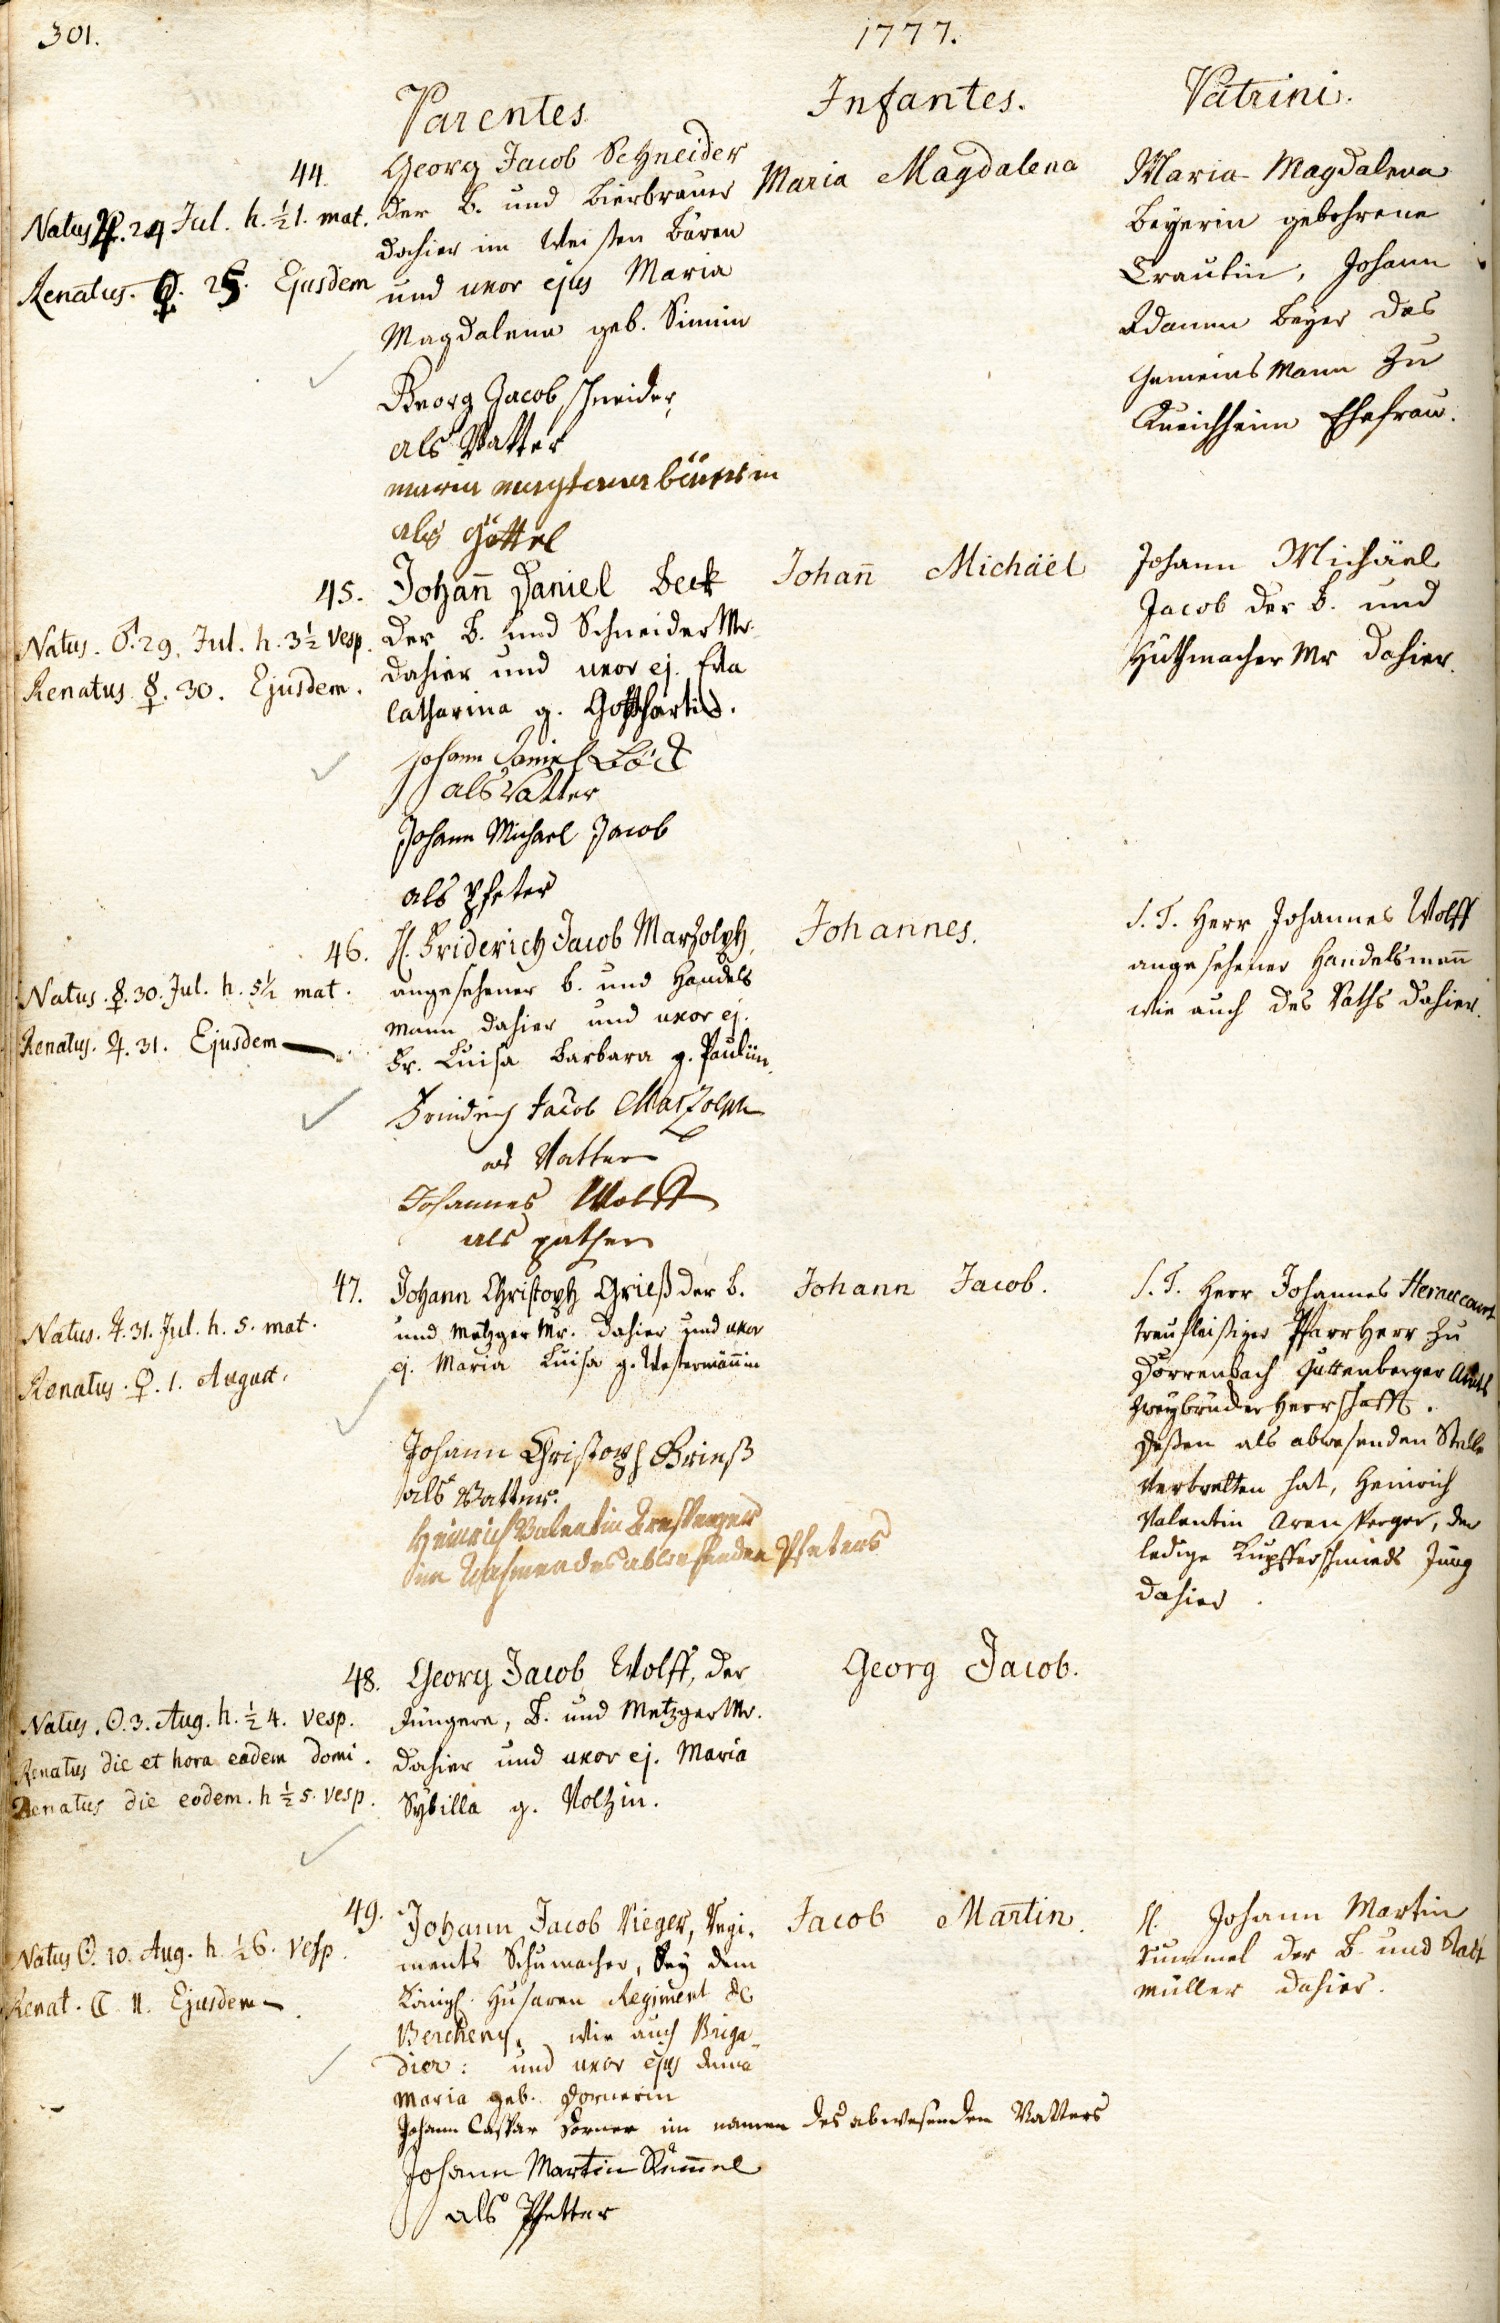 301.
1777.
Parentes
Infantes.
Patrini.
44.
Natus ♃. 24 Jul. h. ½ 1. mat.
Renatus. ♀. 25. Ejusdem
Georg Jacob Schneider
der B. und Bierbrauer
dahier im Weisen Bären
und uxor ejus Maria
Magdalena geb. Simin
Georg Jacob schneider
als Vatter
als Göttel
Maria Magdalena
Maria Magdalena
Beyerin gebohrene
Trautin, Johann
Adamm Beyer des
Gemeins Mann zu
Ehefrau.
45.
Natus. ♂. 29. Jul. h. 3½ vesp.
Renatus ☿. 30. Ejusdem.
Johan̄ Daniel Beck
der B. und Schneider Mr.
dahier und uxor ej. Eva
Catharina g. Gotthartin.
Johann Daniel Böck
als Vatter
Johann Michael Jacob
als Pfeter
Johan̄ Michäel
Johann Michäel
Jacob der B. und
Huthmacher Mr dahier.
46.
Natus. ☿. 30. Jul. h. 5½ mat.
Renatus. ♃. 31. Ejusdem
H. Friderich Jacob Marzolph,
angesehener B. und Handels
Mann dahier und uxor ej.
Fr. Luisa Barbara g. Paulin.
Friedrich Jacob Marzolph
als Vatter
Johannes Wolff
als pather
Johannes.
S. T. Herr Johannes Wolff
angesehener Handelsman̄
wie auch des Raths dahier.
47.
Natus. ♃. 31. Jul. h. 5. mat.
Renatus. ♀. 1. August.
Johann Christoph Grieß der B.
und Metzger Mr. dahier und uxor
ej. Maria Luisa g. Westermän̄in
Johann Christoph Grieß
als Vatter.
Heinrich Valentin Arnsperger
im Nahmen des abwesenden Pfeters
Johann Jacob.
S. T. Herr Johannes Heraucourt
treufleißiger Pfarr Herr zu
Dörrenbach Guttenberger Amts
Zweybrücker Herrschafft.
Deßen als abwesenden Stelle
vertretten hat, Heinrich
Valentin Arensperger, der
ledige Kupfferschmieds Jung
dahier.
48.
Natus. ☉. 3. Aug. h. ½ 4. vesp.
Renatus die et hora eadem domi.
Renatus die eodem. h ½ 5. vesp.
Georg Jacob Wolff, der
Jüngere, B. und Metzger Mr.
dahier und uxor ej. Maria
Sybilla g. Volzin.
Georg Jacob.
49.
Natus ☉. 10. Aug. h. ½ 6. vesp.
Renat. ☾ 11. Ejusdem
Johann Jacob Rieger, Regi-
ments Schumacher, bey dem
Königl. Husaren Regiment de
Bercheny, wie auch Briga-
dier: und uxor ejus Anna
Maria geb. Dornerin
Johann Caspar Dorner im namen des abwesenden Vatters
Johann Martin Rummel
als Pfetter
Jacob Martin.
H. Johann Martin
Rummel der B. und Statt
müller dahier.